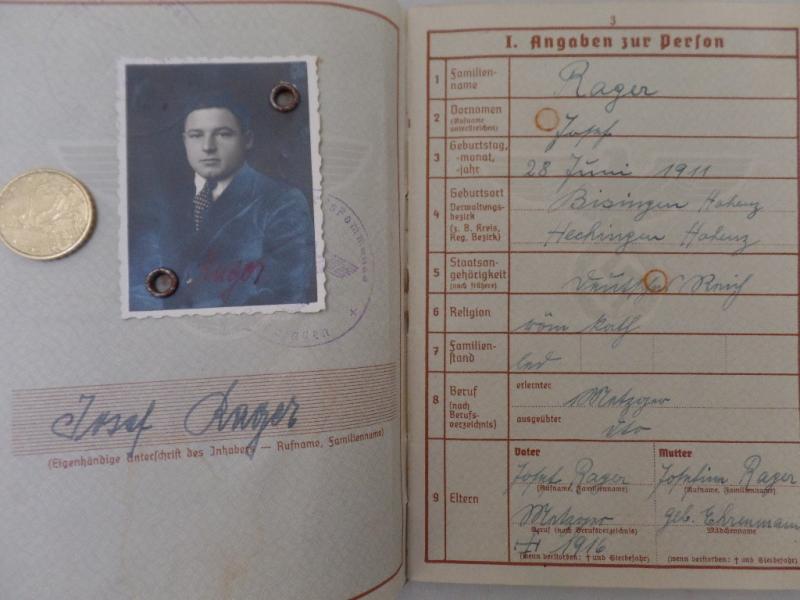 Rager
Josef Rager
(Eigenhändige Unterschrift des Inhabers — Rufname, Familienname)
3
I. Angaben zur Person
1 Familien-
name
Rager
2 Vornamen
(Rufname
unterstreichen)
Josef
3 Geburtstag,
-monat,
-jahr
28 Juni 1911
4 Geburtsort
Verwaltungs-
bezirk
(z. B. Kreis,
Reg. Bezirk)
Bisingen Hohenz
Hechingen Hohenz
5 Staatsan-
gehörigkeit
(auch frühere)
Deutsches Reich
6 Religion
röm kath
7 Familien-
stand
led
8 Beruf
(nach
Berufs-
verzeichnis)
erlernter
Metzger
ausgeübter
dto
9 Eltern
Vater
Josef Rager
(Rufname, Familienname)
Metzger
Beruf (nach Berufsverzeichnis)
† 1916
(wenn verstorben: † und Sterbejahr)
Mutter
Josefine Rager
(Rufname, Familienname)
geb. Ehrenmann
Mädchenname
(wenn verstorben: † und Sterbejahr)